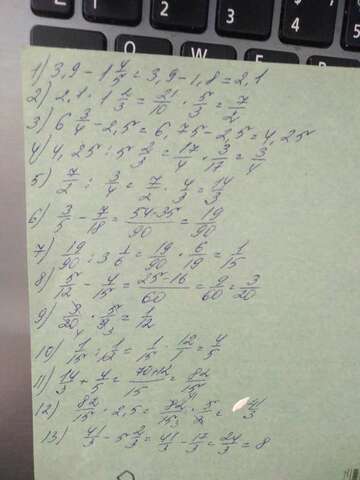 1) 3,9 - 1 4/5 = 3,9 - 1,8 = 2,1
2) 2,1 · 1 2/3 = 21/10 · 5/3 = 7/2
3) 6 3/4 - 2,5 = 6,75 - 2,5 = 4,25
4) 4,25 : 5 2/3 = 17/4 · 3/17 = 3/4
5) 7/2 : 3/4 = 7/2 · 4/3 = 14/3
6) 3/5 - 7/18 = 54-35/90 = 19/90
7) 19/90 : 3 1/6 = 19/90 · 6/19 = 1/15
8) 5/12 - 4/15 = 25-16/60 = 9/60 = 3/20
9) 3/20 · 5/9 = 1/12
10) 1/15 : 1/12 = 1/15 · 12/1 = 4/5
11) 14/3 + 4/5 = 70+12/15 = 82/15
12) 82/15 · 2,5 = 82/15 · 5/2 = 41/3
13) 41/3 - 5 2/3 = 41/3 - 17/3 = 24/3 = 8